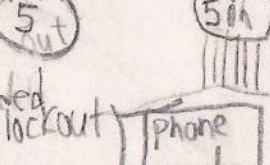 5
out
5 in
ded
lockout
phone